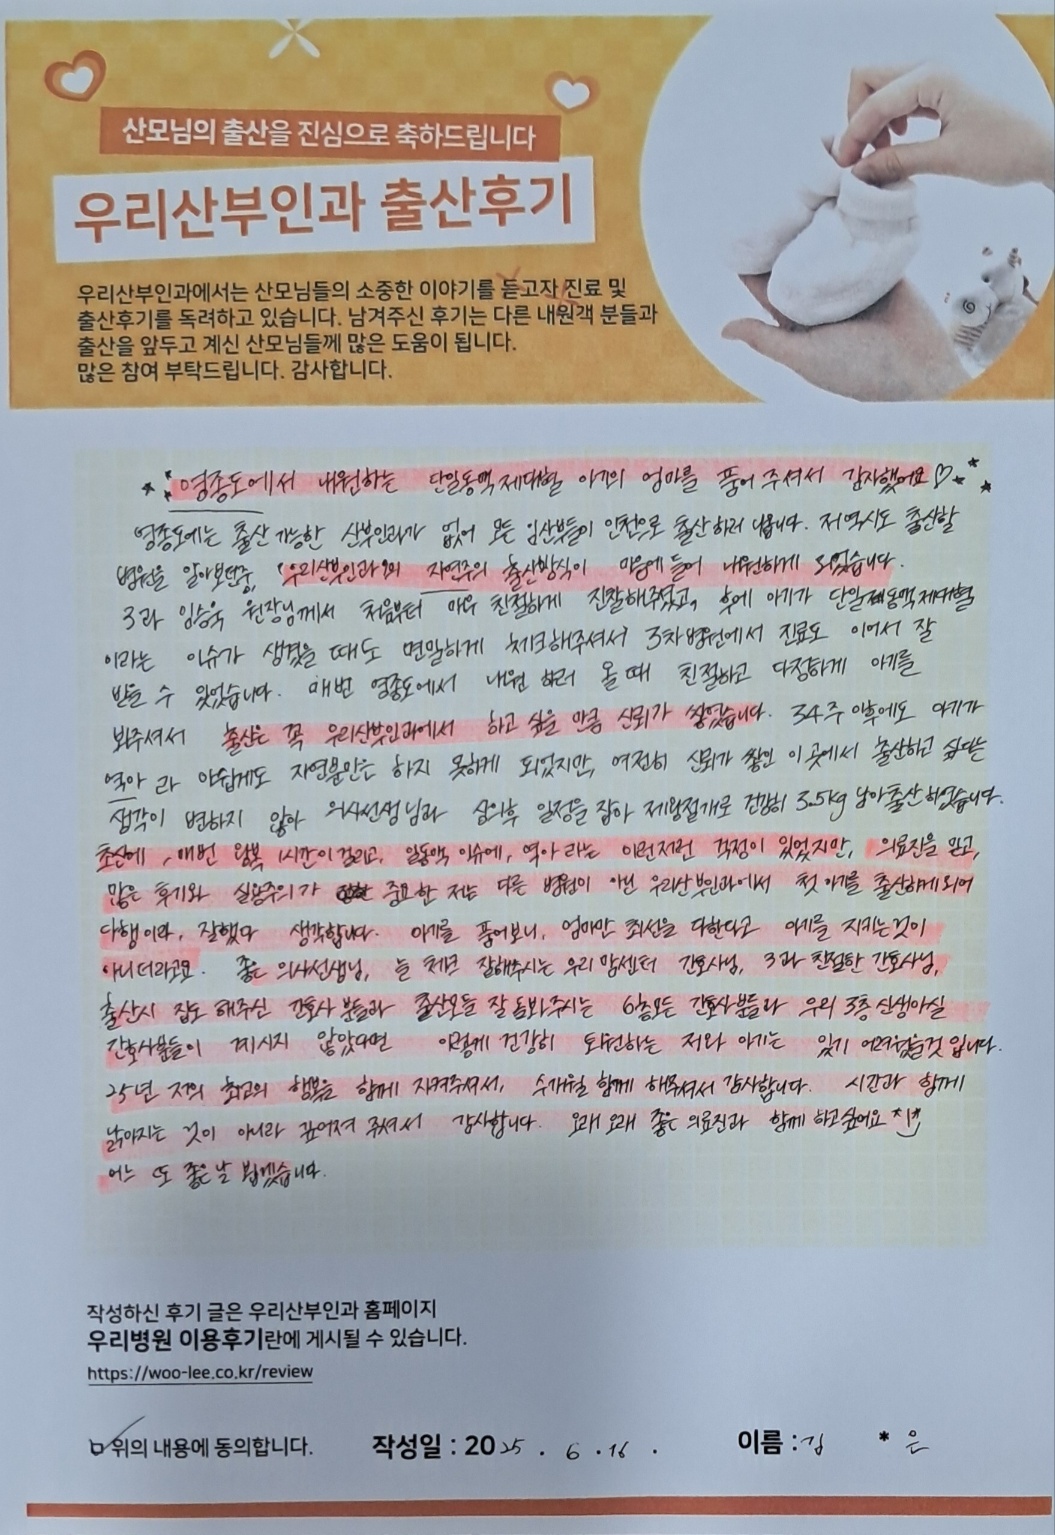 산모님의 출산을 진심으로 축하드립니다
우리산부인과 출산후기
우리산부인과에서는 산모님들의 소중한 이야기를 듣고자 진료 및
출산후기를 독려하고 있습니다. 남겨주신 후기는 다른 내원객 분들과
출산을 앞두고 계신 산모님들께 많은 도움이 됩니다.
많은 참여 부탁드립니다. 감사합니다.
영종도에서 내원하는 단일동맥제대혈 아기의 엄마를 품어 주셔서 감사했어요♡
영종도에는 출산 가능한 산부인과가 없어 모든 임산부들이 인천으로 출산하러 나옵니다. 저 역시도 출산할
병원을 알아보던중, '우리산부인과'의 자연주의 출산방식이 마음에 들어 내원하게 되었습니다.
3과 임승욱 원장님께서 처음부터 매우 친절하게 진찰해주셨고, 후에 아기가 단일동맥제대혈
이라는 이슈가 생겼을 때도 면밀하게 체크해주셔서 3차병원에서 진료도 이어서 잘
받을 수 있었습니다. 매번 영종도에서 내원 하러 올 때 친절하고 다정하게 아기를
봐주셔서 출산은 꼭 우리산부인과에서 하고 싶을 만큼 신뢰가 쌓였습니다. 34주 이후에도 아기가
역아 라 아쉽게도 자연분만은 하지 못하게 되었지만, 여전히 신뢰가 쌓인 이 곳에서 출산하고 싶다는
생각이 변하지 않아 의사선생님과 상의후 일정을 잡아 제왕절개로 건강히 3.5kg 남아 출산하였습니다.
초산에, 매번 왕복 1시간이 걸리고, 일동맥 이슈에, 역아 라는 이런저런 걱정이 있었지만, 의료진을 믿고,
많은 후기와 실용주의가 중요한 저는 다른 병원이 아닌 우리산부인과에서 첫 아기를 출산하게 되어
다행이라, 잘했다 생각합니다. 아기를 품어보니, 엄마만 최선을 다한다고 아기를 지키는것이
아니더라고요. 좋은 의사선생님, 늘 체크 잘해주시는 우리 맘센터 간호사님, 3과 친절한 간호사님,
출산시 집도 해주신 간호사 분들과 출산모들 잘 돌봐주시는 6층모든 간호사분들과 우리 3층 신생아실
간호사분들이 계시지 않았다면 이렇게 건강히 퇴원하는 저와 아기는 있기 어려웠을것 입니다.
25년 저의 최고의 행복을 함께 지켜주셔서, 수개월 함께 해주셔서 감사합니다. 시간과 함께
낡아지는 것이 아니라 깊어져 주셔서 감사합니다. 오래 오래 좋은 의료진과 함께 하고싶어요
어느 또 좋은 날 뵙겠습니다.
작성하신 후기 글은 우리산부인과 홈페이지
우리병원 이용후기란에 게시될 수 있습니다.
https://woo-lee.co.kr/review
위의 내용에 동의합니다. 작성일 : 2025 . 6 . 16 . 이름 : 김 * 은